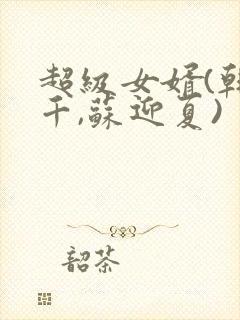 超級女婿(韓
千,蘇迎夏)
韶茶